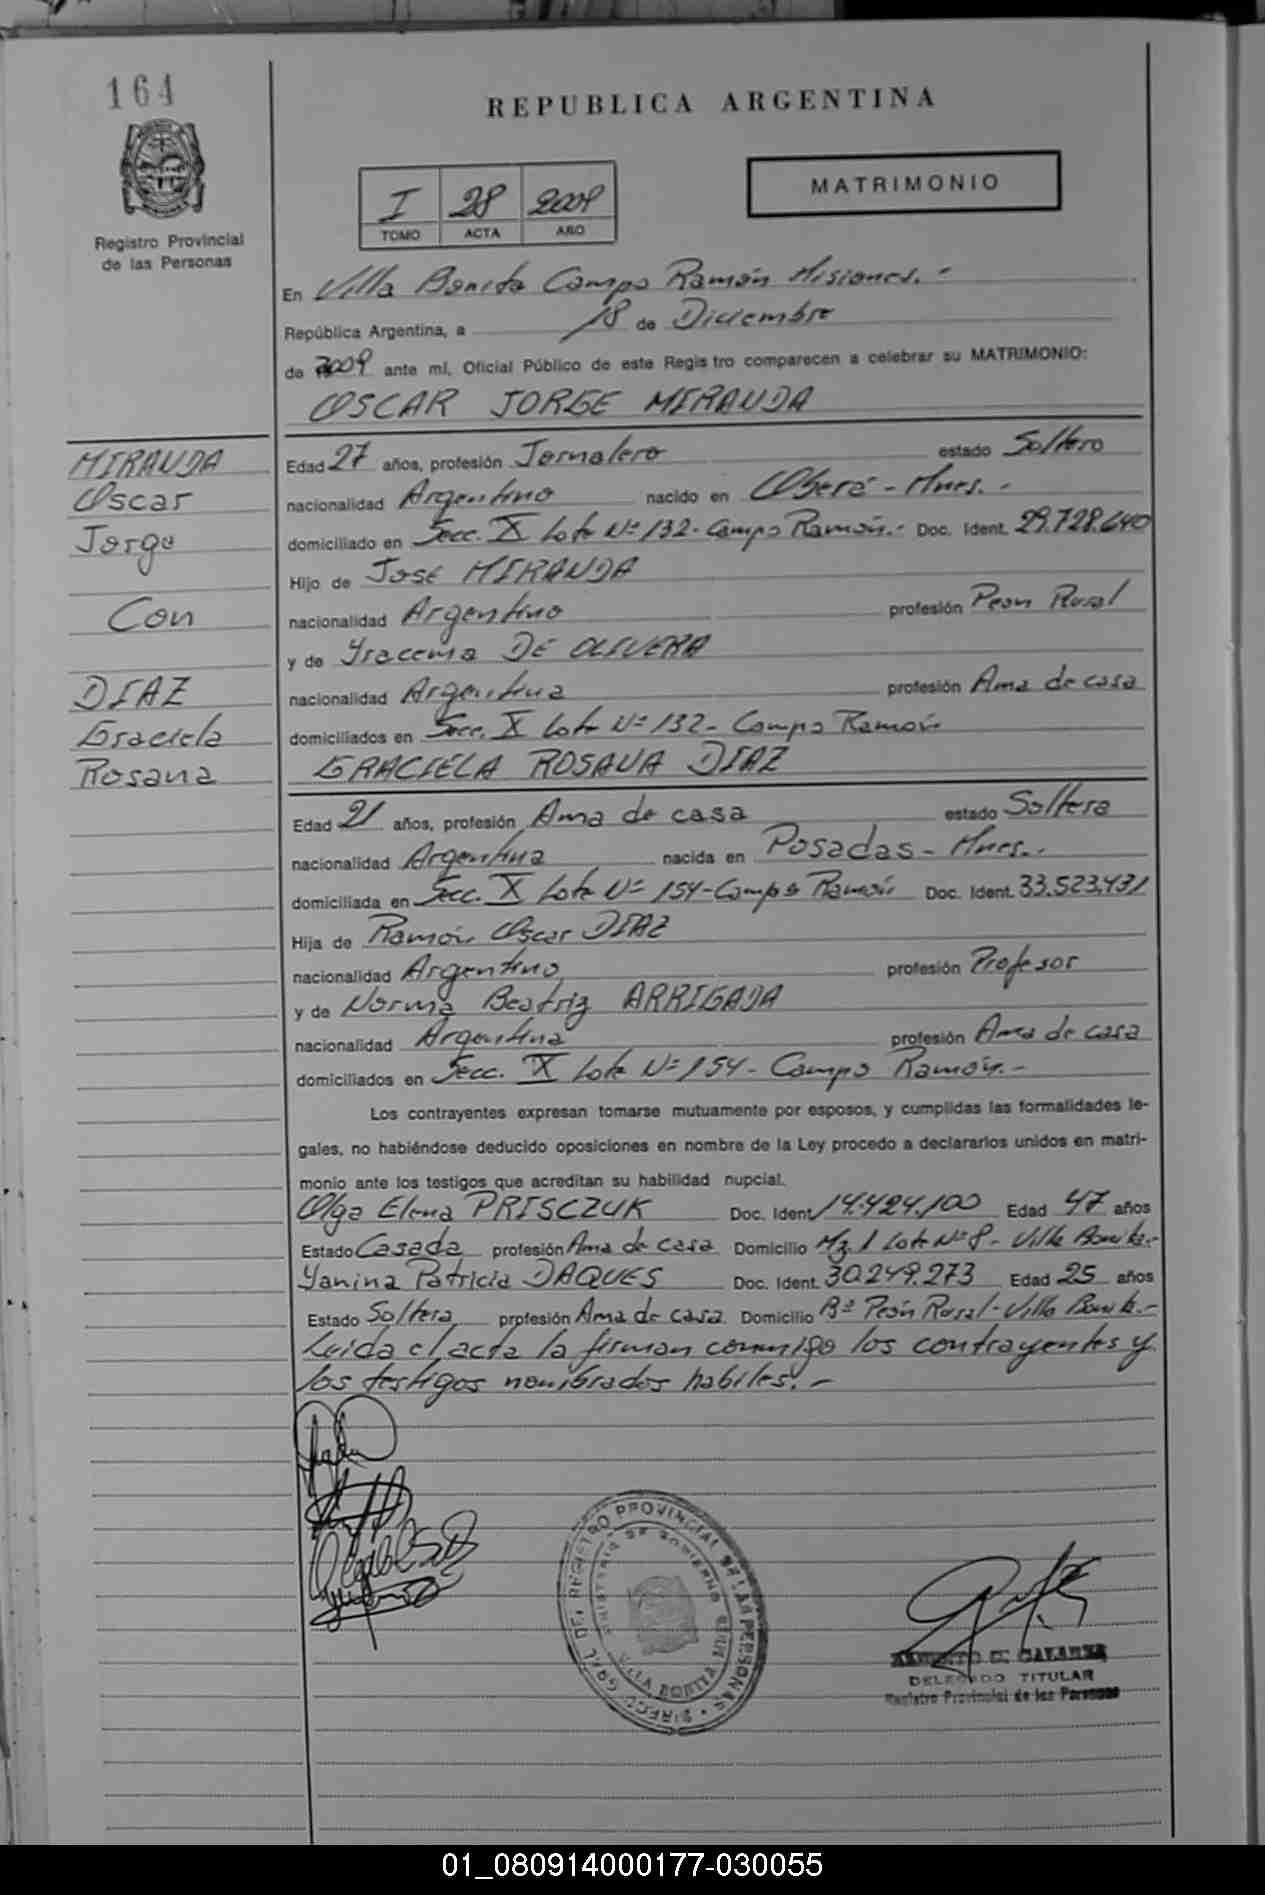 164
REPUBLICA ARGENTINA
I 28 2009
TOMO ACTA AÑO
MATRIMONIO
Registro Provincial
de las Personas
En Villa Bonita Campo Ramón Misiones.-
República Argentina, a 18 de Diciembre
de 2009 ante mí, Oficial Público de este Registro comparecen a celebrar su MATRIMONIO:
OSCAR JORGE MIRANDA
MIRANDA
Oscar
Jorge
Con
DIAZ
Graciela
Rosana
Edad 27 años, profesión Jornalero estado Soltero
nacionalidad Argentino nacido en Oberá - Mnes.-
domiciliado en Secc. X Lote Nº 132- Campo Ramón.- Doc. Ident. 29.728.640
Hijo de José MIRANDA
nacionalidad Argentino profesión Peon Rural
y de Yracema DE OLIVERA
nacionalidad Argentina profesión Ama de casa
domiciliados en Secc. X Lote Nº 132- Campo Ramón
GRACIELA ROSANA DIAZ
Edad 21 años, profesión Ama de casa estado Soltera
nacionalidad Argentina nacida en Posadas - Mnes.-
domiciliada en Secc. X Lote Nº 154-Campo Ramón Doc. Ident. 33.523.431
Hija de Ramón Oscar DIAZ
nacionalidad Argentino profesión Profesor
y de Norma Beatriz ARRIGADA
nacionalidad Argentina profesión Ama de casa
domiciliados en Secc. X Lote Nº 154- Campo Ramón.-
Los contrayentes expresan tomarse mutuamente por esposos, y cumplidas las formalidades le-
gales, no habiéndose deducido oposiciones en nombre de la Ley procedo a declararlos unidos en matri-
monio ante los testigos que acreditan su habilidad nupcial.
Olga Elena PRISCZUK Doc. Ident. 14.424.100 Edad 47 años
Estado Casada profesión Ama de casa Domicilio Mz. 1 Lote Nº 8 - Villa Bonita.-
Yanina Patricia DAQUES Doc. Ident. 30.249.273 Edad 25 años
Estado Soltera profesión Ama de casa Domicilio Bº Peón Rural-Villa Bonita.-
Leida el acta la firman conmigo los contrayentes y
los testigos nombrados habiles.-
DIRECC. GRAL. DEL REGISTRO PROVINCIAL DE LAS PERSONAS
MINISTERIO DE GOBIERNO
VILLA BONITA
DELEGADO TITULAR
Registro Provincial de las Personas
01_080914000177-030055